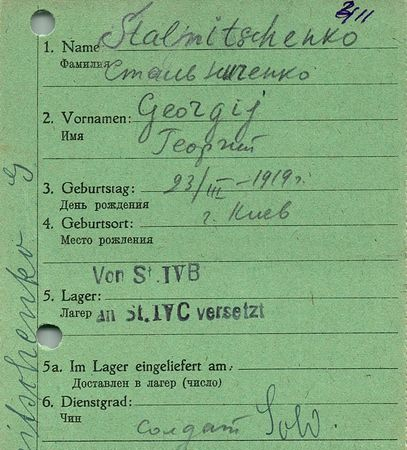 2/11
1. Name Stalnitschenko
Фамилия Стальниченко
2. Vornamen: Georgij
Имя Георгий
3. Geburtstag: 23/III-1919 г.
День рождения
4. Geburtsort: г. Киев
Место рождения
Von St.IVB
5. Lager:
Лагер an St.IVC versetzt
5a. Im Lager eingeliefert am
Доставлен в лагер (число)
6. Dienstgrad:
Чин солдат Sold.